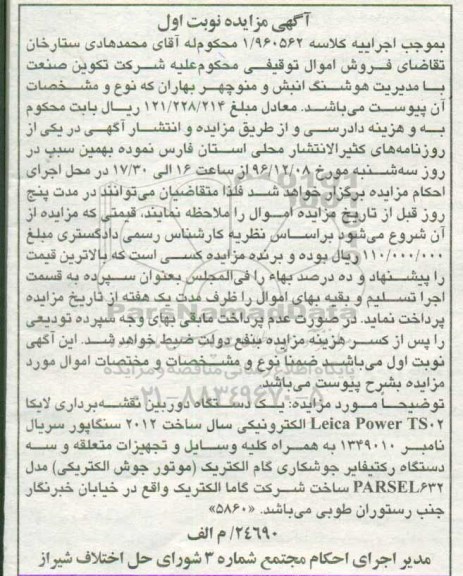 آگهی مزایده نوبت اول
بموجب اجراییه کلاسه ۱/۹۶۰۵۶۲ محکوم‌له آقای محمدهادی ستارخان
تقاضای فروش اموال توقیفی محکوم‌علیه شرکت تکوین صنعت
با مدیریت هوشنگ انبش و منوچهر بهاران که نوع و مشخصات
آن پیوست می‌باشد. معادل مبلغ ۱۲۱/۲۲۸/۲۱۴ ریال بابت محکوم
به و هزینه دادرسی و از طریق مزایده و انتشار آگهی در یکی از
روزنامه‌های کثیرالانتشار محلی استان فارس نموده بهمین سبب در
روز سه‌شنبه مورخ ۹۶/۱۲/۰۸ از ساعت ۱۶ الی ۱۷/۳۰ در محل اجرای
احکام مزایده برگزار خواهد شد فلذا متقاضیان می‌توانند در مدت پنج
روز قبل از تاریخ مزایده اموال را ملاحظه نمایند. قیمتی که مزایده از
آن شروع می‌شود براساس نظریه کارشناس رسمی دادگستری مبلغ
۱۱۰/۰۰۰/۰۰۰ ریال بوده و برنده مزایده کسی است که بالاترین قیمت
را پیشنهاد و ده درصد بهاء را فی‌المجلس بعنوان سپرده به قسمت
اجرا تسلیم و بقیه بهای اموال را ظرف مدت یک هفته از تاریخ مزایده
پرداخت نماید. در صورت عدم پرداخت مابقی بهای وجه سپرده تودیعی
را پس از کسر هزینه مزایده بنفع دولت ضبط خواهد شد. این آگهی
نوبت اول می‌باشد ضمناً نوع و مشخصات و مختصات اموال مورد
مزایده بشرح پیوست می‌باشد
توضیحاً مورد مزایده: یک دستگاه دوربین نقشه‌برداری لایکا
Leica Power TS۰۲ الکترونیکی سال ساخت ۲۰۱۲ سنگاپور سریال
نامبر ۱۳۴۹۰۱۰ به همراه کلیه وسایل و تجهیزات متعلقه و سه
دستگاه رکتیفایر جوشکاری گام الکتریک (موتور جوش الکتریکی) مدل
PARSEL۶۳۲ ساخت شرکت گاما الکتریک واقع در خیابان خبرنگار
جنب رستوران طوبی می‌باشد. «۵۸۶۰»
۲۴۶۹۰/ م الف
مدیر اجرای احکام مجتمع شماره ۳ شورای حل اختلاف شیراز
ParsNamadData
پایگاه اطلاع رسانی مناقصه و مزایده
۰۲۱-۸۸۳۴۹۶۷۰-۵